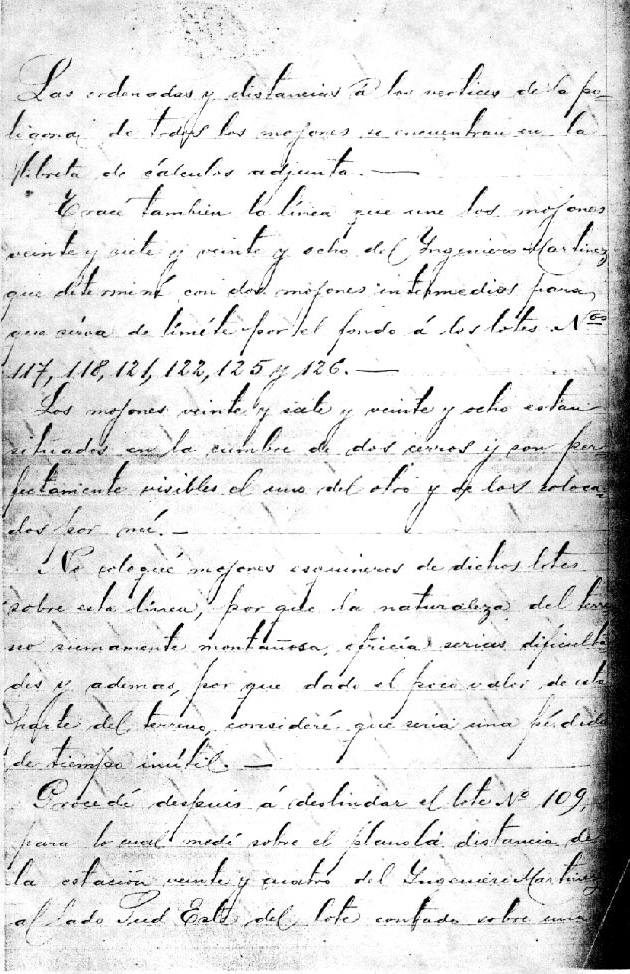 Las ordenadas y distancias á los vertices de la po-
ligonal de todos los mojones se encuentran en la
libreta de cálculos adjunta. —
Tracé tambien la línea que une los mojones
veinte y siete y veinte y ocho del Ingeniero Martinez
que determiné con dos mojones intermedios para
que sirva de límite por el fondo á los lotes Nos
117, 118, 121, 122, 125 y 126. —
Los mojones veinte y siete y veinte y ocho estan
situados en la cumbre de dos cerros y son per
fectamente visibles el uno del otro y de los coloca-
dos por mi. —
No coloqué mojones esquineros de dichos lotes
sobre esta línea, por que la naturaleza del terre
no sumamente montañosa, ofrecia serias dificulta
des y ademas, por que dado el poco valor de esta
parte del terreno, consideré que seria una pérdida
de tiempo inútil. —
Procedé despues á deslindar el lote No 109,
para lo cual medí sobre el plano la distancia de
la estación veinte y cuatro del Ingeniero Martinez
al lado Sud Este del lote contada sobre una